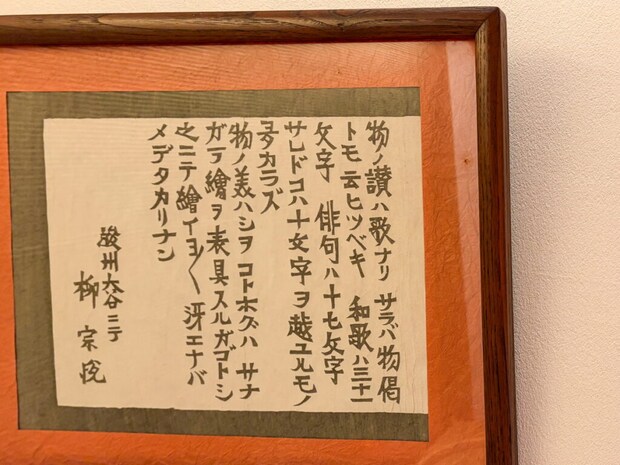 物ノ讃ハ歌ナリ サラバ物偈
トモ云ヒツベキ 和歌ハ三十一
文字 俳句ハ十七文字
サレドコハ十文字ヲ越ユルモノ
ヱタカラズ
物ノ美ハシヲ コトホグハ サナ
ガラ繪ヲ表具スルガゴトシ
之ニテ繪イヨ〱冴エナバ
メデタカリナン
駿州大谷ニテ
柳宗悦